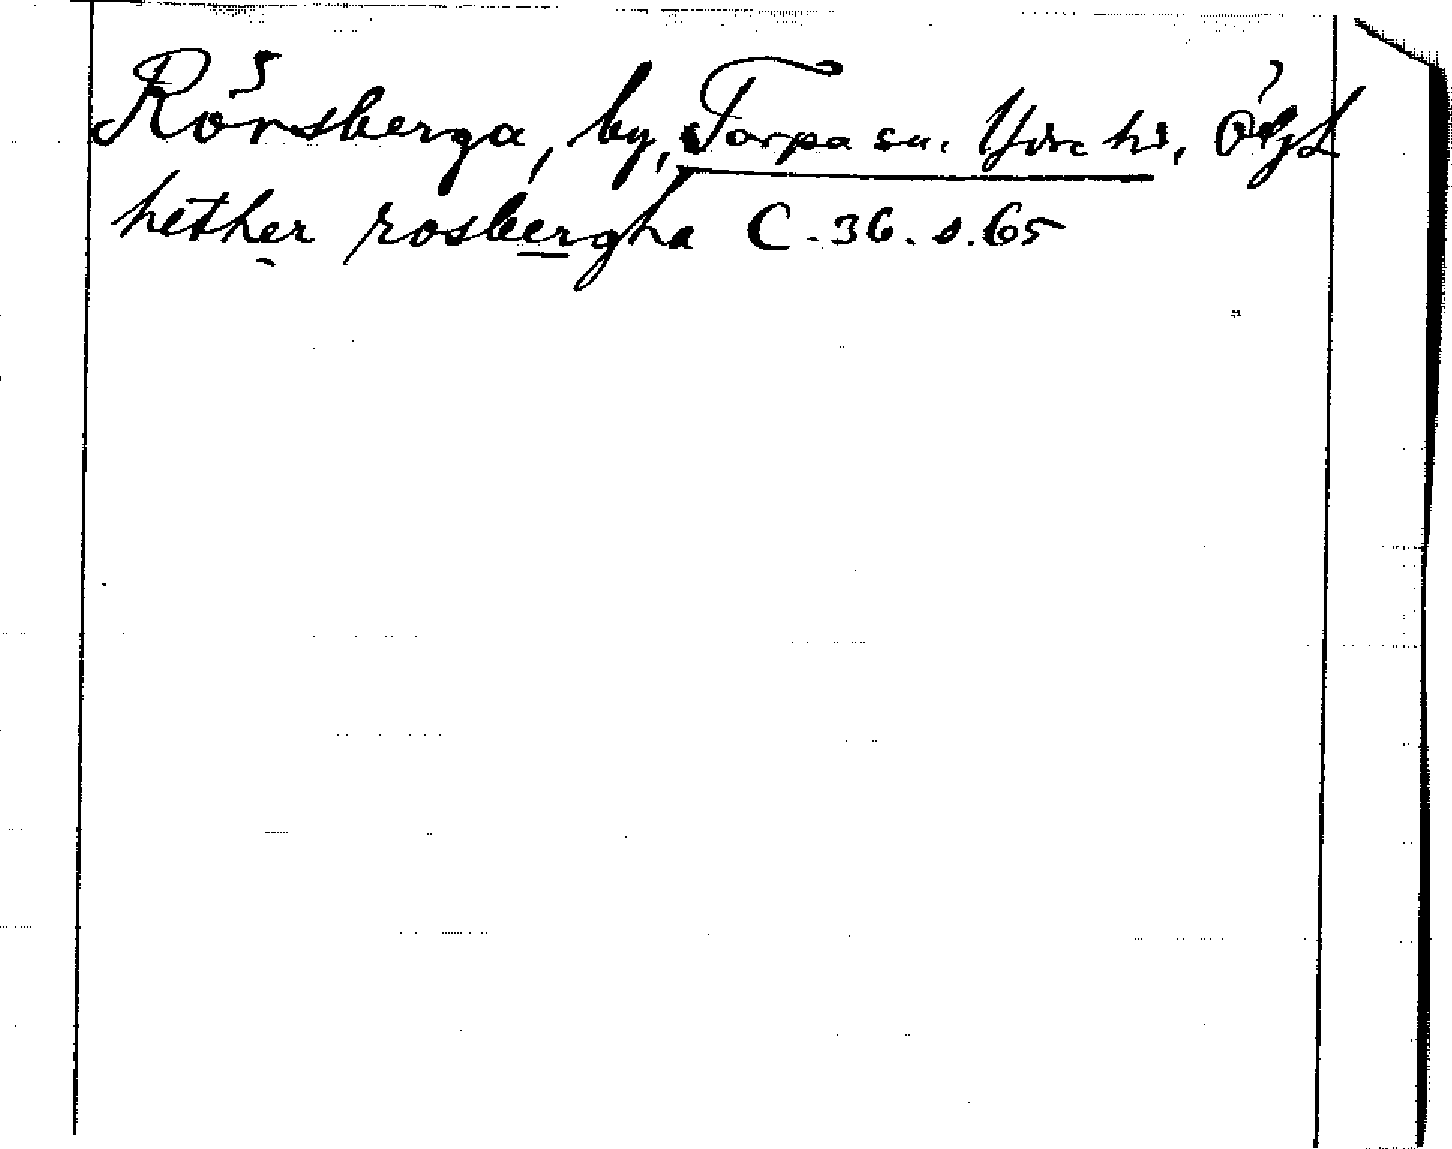 Rörsberga, by, Torpa sn. Ydre hd, Ögl
hether rosbergha C-36. s. 65